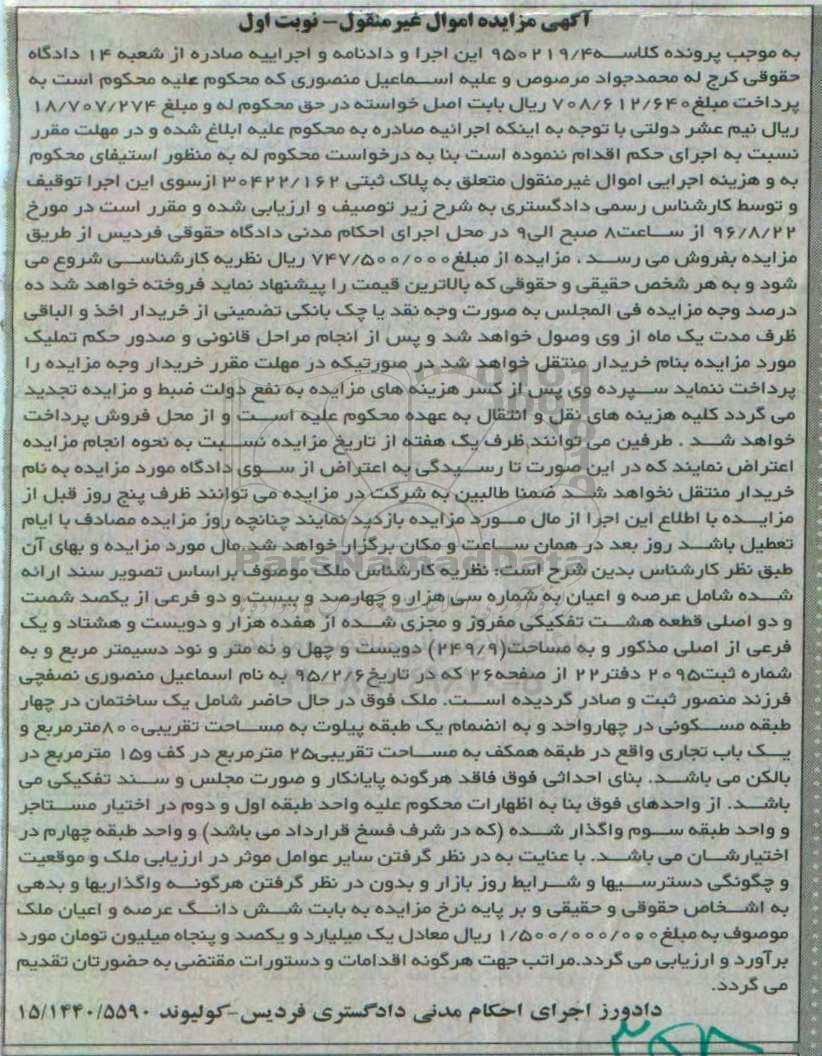 آگهی مزایده اموال غیرمنقول- نوبت اول
به موجب پرونده کلاسه ۹۵۰۲۱۹/۴ این اجرا و دادنامه و اجراییه صادره از شعبه ۱۴ دادگاه
حقوقی کرج له محمدجواد مرصوص و علیه اسماعیل منصوری که محکوم علیه محکوم است به
پرداخت مبلغ ۷۰۸/۶۱۲/۶۴۰ ریال بابت اصل خواسته در حق محکوم له و مبلغ ۱۸/۷۰۷/۲۷۴
ریال نیم عشر دولتی با توجه به اینکه اجرائیه صادره به محکوم علیه ابلاغ شده و در مهلت مقرر
نسبت به اجرای حکم اقدام ننموده است بنا به درخواست محکوم له به منظور استیفای محکوم
به و هزینه اجرایی اموال غیرمنقول متعلق به پلاک ثبتی ۳۰۴۲۲/۱۶۲ ازسوی این اجرا توقیف
و توسط کارشناس رسمی دادگستری به شرح زیر توصیف و ارزیابی شده و مقرر است در مورخ
۹۶/۸/۲۲ از ساعت۸ صبح الی۹ در محل اجرای احکام مدنی دادگاه حقوقی فردیس از طریق
مزایده بفروش می رسد . مزایده از مبلغ ۷۴۷/۵۰۰/۰۰۰ ریال نظریه کارشناسی شروع می
شود و به هر شخص حقیقی و حقوقی که بالاترین قیمت را پیشنهاد نماید فروخته خواهد شد ده
درصد وجه مزایده فی المجلس به صورت وجه نقد یا چک بانکی تضمینی از خریدار اخذ و الباقی
ظرف مدت یک ماه از وی وصول خواهد شد و پس از انجام مراحل قانونی و صدور حکم تملیک
مورد مزایده بنام خریدار منتقل خواهد شد در صورتیکه در مهلت مقرر خریدار وجه مزایده را
پرداخت ننماید سپرده وی پس از کسر هزینه های مزایده به نفع دولت ضبط و مزایده تجدید
می گردد کلیه هزینه های نقل و انتقال به عهده محکوم علیه است و از محل فروش پرداخت
خواهد شد . طرفین می توانند ظرف یک هفته از تاریخ مزایده نسبت به نحوه انجام مزایده
اعتراض نمایند که در این صورت تا رسیدگی به اعتراض از سوی دادگاه مورد مزایده به نام
خریدار منتقل نخواهد شد ضمنا طالبین به شرکت در مزایده می توانند ظرف پنج روز قبل از
مزایده با اطلاع این اجرا از مال مورد مزایده بازدید نمایند چنانچه روز مزایده مصادف با ایام
تعطیل باشد روز بعد در همان ساعت و مکان برگزار خواهد شد.مال مورد مزایده و بهای آن
طبق نظر کارشناس بدین شرح است: نظریه کارشناس ملک موصوف براساس تصویر سند ارائه
شده شامل عرصه و اعیان به شماره سی هزار و چهارصد و بیست و دو فرعی از یکصد شصت
و دو اصلی قطعه هشت تفکیکی مفروز و مجزی شده از هفده هزار و دویست و هشتاد و یک
فرعی از اصلی مذکور و به مساحت(۲۴۹/۹) دویست و چهل و نه متر و نود دسیمتر مربع و به
شماره ثبت۲۰۹۵ دفتر۲۲ از صفحه۲۶ که در تاریخ۹۵/۲/۶ به نام اسماعیل منصوری نصفچی
فرزند منصور ثبت و صادر گردیده است. ملک فوق در حال حاضر شامل یک ساختمان در چهار
طبقه مسکونی در چهارواحد و به انضمام یک طبقه پیلوت به مساحت تقریبی۸۰۰مترمربع و
یک باب تجاری واقع در طبقه همکف به مساحت تقریبی۲۵ مترمربع در کف و۱۵ مترمربع در
بالکن می باشد. بنای احداثی فوق فاقد هرگونه پایانکار و صورت مجلس و سند تفکیکی می
باشد. از واحدهای فوق بنا به اظهارات محکوم علیه واحد طبقه اول و دوم در اختیار مستاجر
و واحد طبقه سوم واگذار شده (که در شرف فسخ قرارداد می باشد) و واحد طبقه چهارم در
اختیارشان می باشد. با عنایت به در نظر گرفتن سایر عوامل موثر در ارزیابی ملک و موقعیت
و چگونگی دسترسیها و شرایط روز بازار و بدون در نظر گرفتن هرگونه واگذاریها و بدهی
به اشخاص حقوقی و حقیقی و بر پایه نرخ مزایده به بابت شش دانگ عرصه و اعیان ملک
موصوف به مبلغ ۱/۵۰۰/۰۰۰/۰۰۰ ریال معادل یک میلیارد و یکصد و پنجاه میلیون تومان مورد
برآورد و ارزیابی می گردد.مراتب جهت هرگونه اقدامات و دستورات مقتضی به حضورتان تقدیم
می گردد.
دادورز اجرای احکام مدنی دادگستری فردیس-کولیوند ۱۵/۱۴۴۰/۵۵۹۰
ParsNamadData